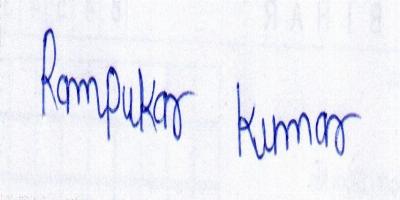 BIHAR
Rampukar Kumar